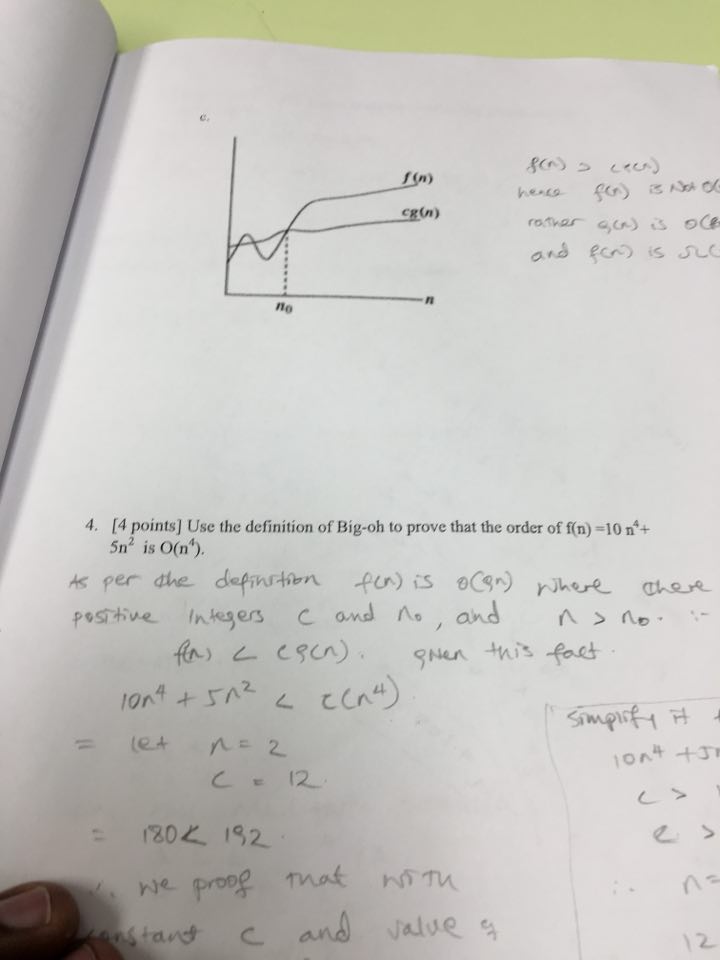 c.
f(n)
cg(n)
n
n₀
f(n) > cg(n)
hence f(n) is Not O(
rather g(n) is O(
and f(n) is Ω(
4. [4 points] Use the definition of Big-oh to prove that the order of f(n) =10 n⁴+
5n² is O(n⁴).
As per the definition f(n) is O(gn) where there
positive Integers c and n₀, and n > n₀. :-
f(n) < cg(n). given this fact.
10n⁴ + 5n² < c(n⁴)
= let n = 2
c = 12.
= 180 < 192.
∴ we proof that with
constant c and value of
simplify it
10n⁴ + 5n
c >
c >
∴ n =
12